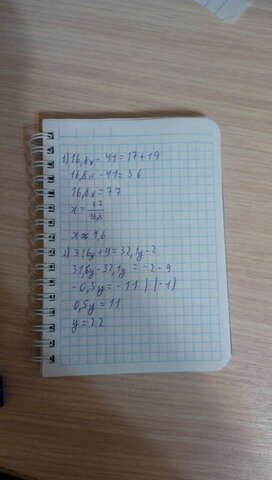 1) 16,8x - 41 = 17 + 19
16,8x - 41 = 36
16,8x = 77
x = 77/16,8
x ≈ 4,6
2) 31,6y + 9 = 32,1y - 2
31,6y - 32,1y = -2 - 9
-0,5y = -11 | (-1)
0,5y = 11
y = 22